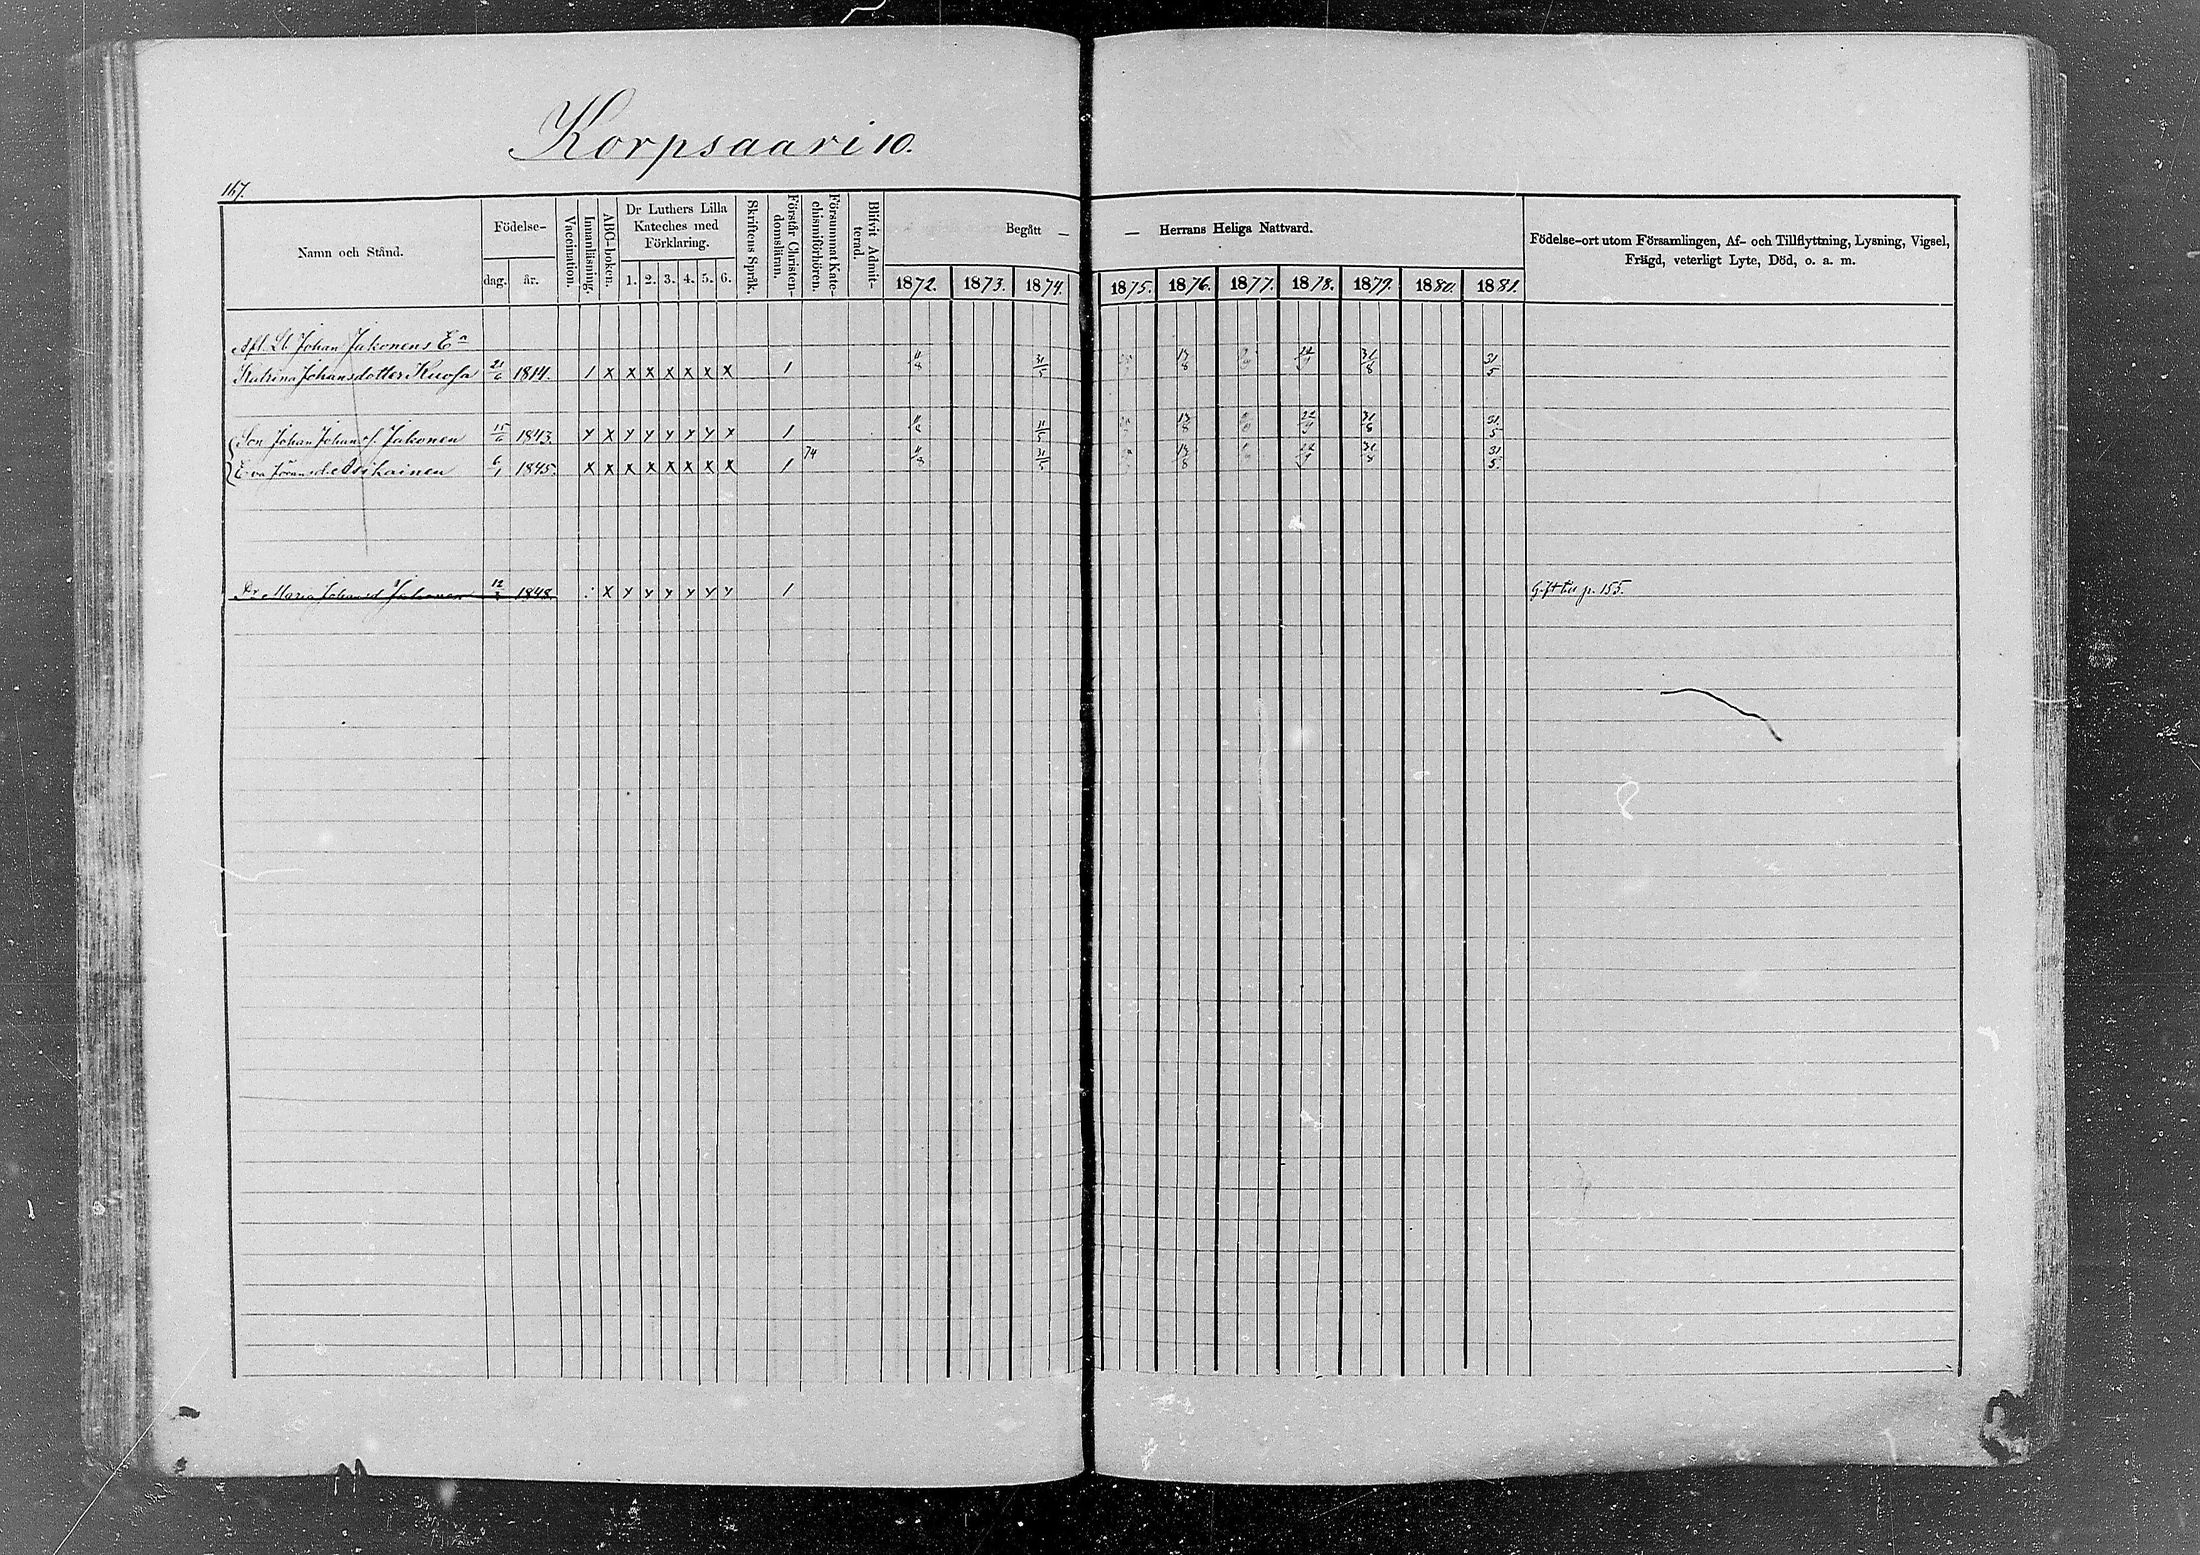 Korpsaari 10.
167.
Namn och Stånd.
Födelse-
dag.
år.
Vaccination.
Innanläsning.
ABC-boken.
Dr Luthers Lilla
Kateches med
Förklaring.
1. 2. 3. 4. 5. 6.
Skriftens Språk.
Förstår Christen-
domsläran.
Försummat Kate-
chismiförhören.
Blifvit Admit-
terad.
Begått —
— Herrans Heliga Nattvard.
1872. 1873. 1874. 1875. 1876. 1877. 1878. 1879. 1880. 1881.
Födelse-ort utom Församlingen, Af- och Tillflyttning, Lysning, Vigsel,
Frägd, veterligt Lyte, Död, o. a. m.
Afl. Lb. Johan Jakonens Ea
Katrina Johansdotter Kuosa 21/6 1814. 1 x x x x x x x 1 11/8 31/5 13/8 22/9 31/8 31/5
Son Johan Johans. Jakonen 15/6 1843. x x x x x x x x 1 11/8 11/5 13/8 22/9 31/8 31/5
Eva Jöransd. Asikainen 6/1 1845. x x x x x x x x 1 74 11/8 31/5 13/8 22/9 31/8 31/5
Dr Maria Johansd Jakonen 1848. x x x x x x x 1 Gift till p. 155.